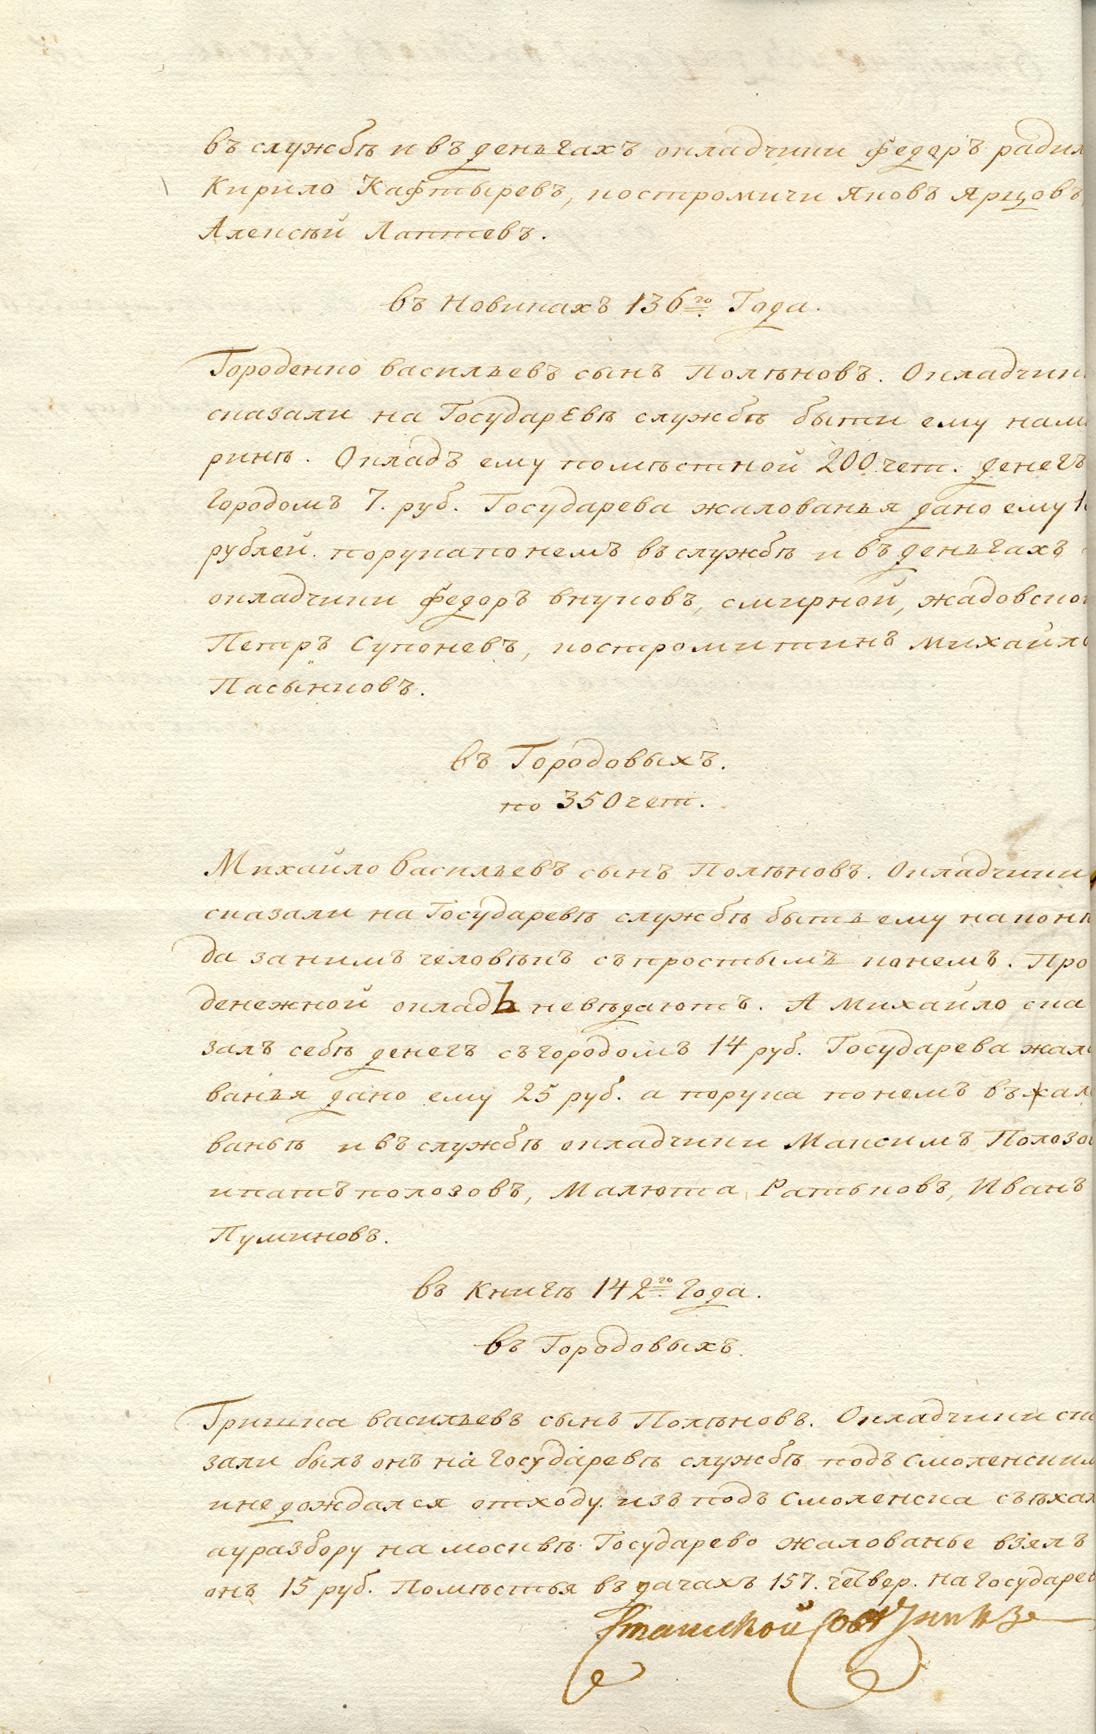 въ службѣ и въ деньгахъ окладчики Федоръ ради
Кирило Кафтыревъ, костромичи Яковъ Ярцовъ
Алексѣй Лаптевъ.
въ Новикахъ 136го Года.
Городецко Васильевъ сынъ Полѣновъ. Окладчики
сказали на ГосударЕвѣ службѣ быти ему на ме
ринѣ. Окладъ ему помѣстной 200 чет. денегъ
городомъ 7. руб. Государева жалованья дано ему
рублей. порука по немъ въ службѣ и въ деньгахъ
окладчики Федоръ Внуковъ, смирной, жадовской
Петръ Супоневъ, костромитинъ михайло
Пасынковъ.
въ Городовыхъ.
по 350 чет.
Михайло Васильевъ сынъ Полѣновъ. Окладчики
сказали на Государевѣ службѣ быть ему на конѣ
да за нимъ человѣкъ съ простымъ конемъ. Про
денежной окладъ невѣдаютъ. А Михайло ска
залъ себѣ денегъ съ городомъ 14 руб. Государева жало
ванья дано ему 25 руб. а порука по немъ въ жало
ваньѣ и въ службѣ окладчики Максимъ Полозов
ипатъ полозовъ, Малюта Ратьковъ, Иванъ
Пуминовъ.
въ Книгѣ 142го Года.
въ Городовыхъ.
Гришка Васильевъ сынъ Полѣновъ. Окладчики ска
зали былъ онъ на Государевѣ службѣ подъ Смоленским
и не дождался отходу изъ подъ Смоленска съѣхал
а у разбору на москвѣ. Государево жалованье взялъ
онъ 15 руб. Помѣстья въ дачахъ 157. четвер. на Государев
Статской Советникъ